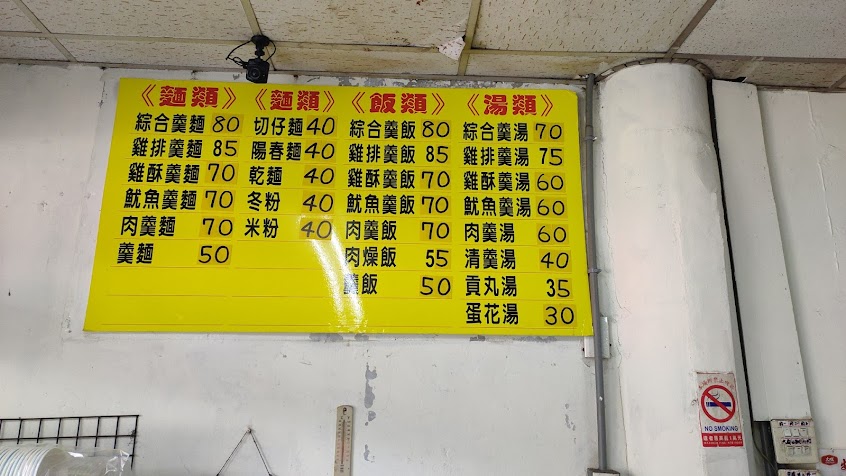 《麵類》
綜合羹麵 80
雞排羹麵 85
雞酥羹麵 70
魷魚羹麵 70
肉羹麵 70
羹麵 50
《麵類》
切仔麵 40
陽春麵 40
乾麵 40
冬粉 40
米粉 40
《飯類》
綜合羹飯 80
雞排羹飯 85
雞酥羹飯 70
魷魚羹飯 70
肉羹飯 70
肉燥飯 55
羹飯 50
《湯類》
綜合羹湯 70
雞排羹湯 75
雞酥羹湯 60
魷魚羹湯 60
肉羹湯 60
清羹湯 40
貢丸湯 35
蛋花湯 30
NO SMOKING